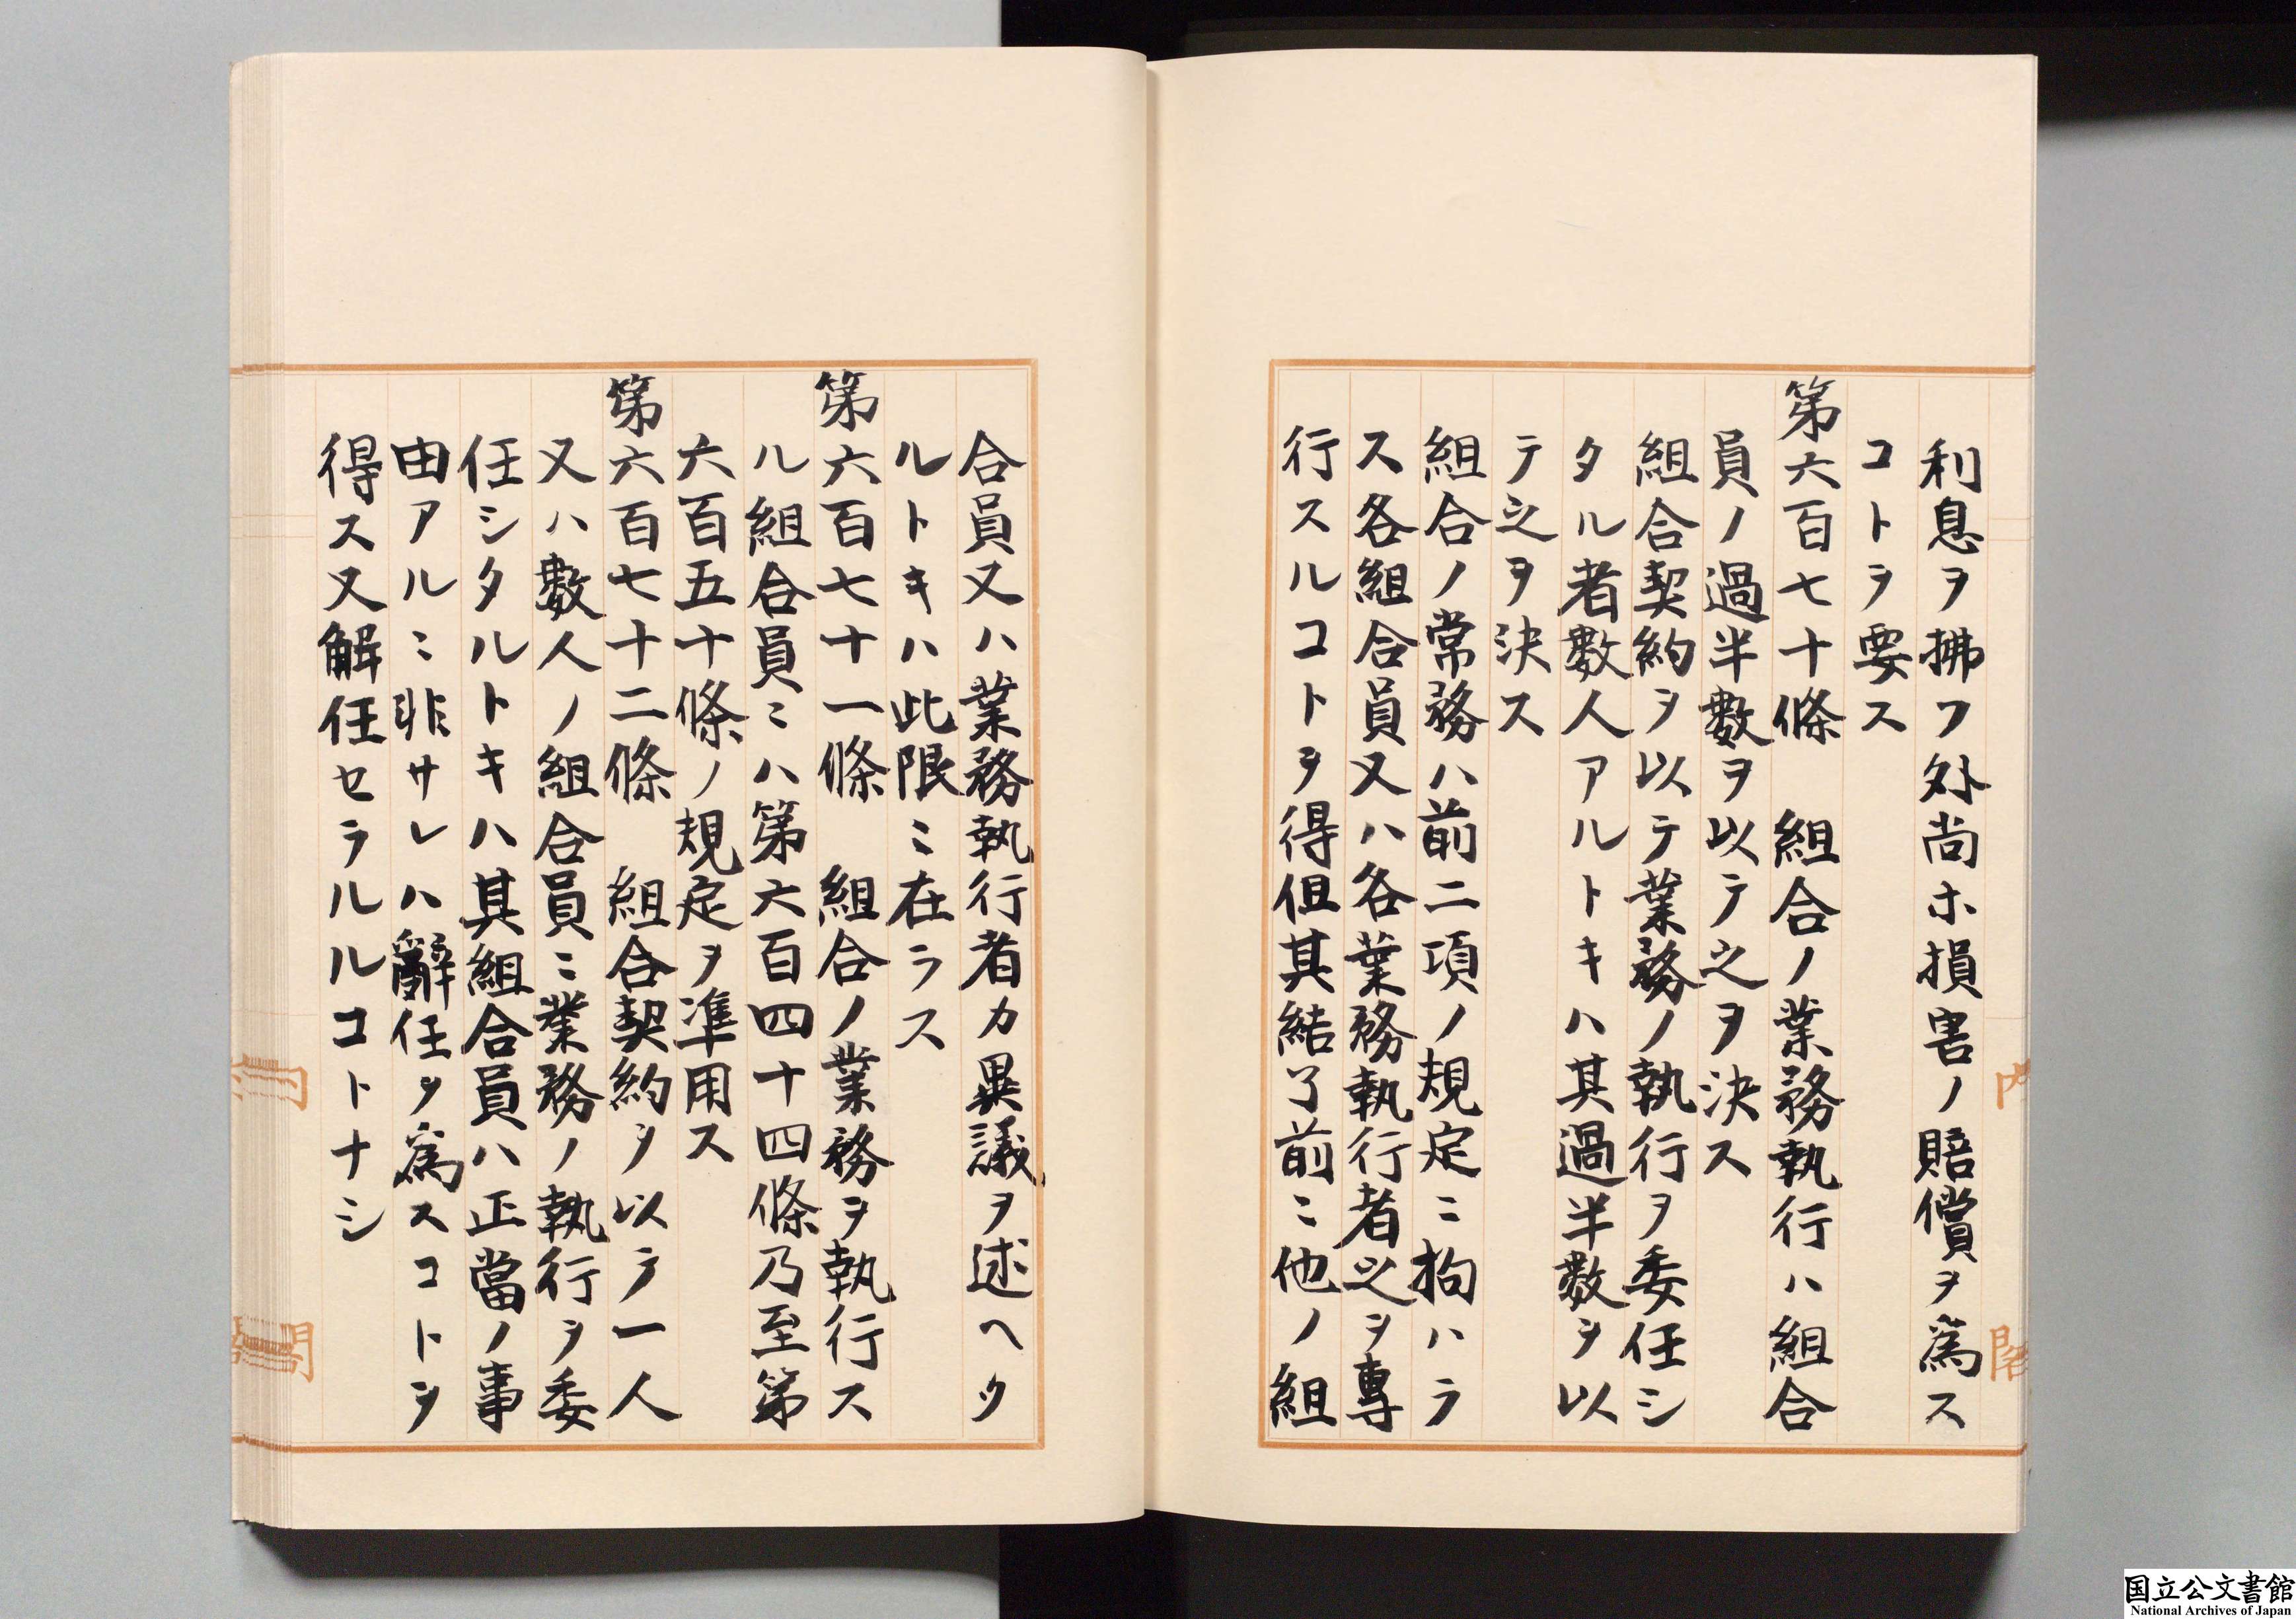 利息ヲ拂フ外尚ホ損害ノ賠償ヲ爲ス
コトヲ要ス
第六百七十條　組合ノ業務執行ハ組合
員ノ過半數ヲ以テ之ヲ決ス
組合契約ヲ以テ業務ノ執行ヲ委任シ
タル者數人アルトキハ其過半數ヲ以
テ之ヲ決ス
組合ノ常務ハ前二項ノ規定ニ拘ハラ
ス各組合員又ハ各業務執行者之ヲ專
行スルコトヲ得但其結了前ニ他ノ組
合員又ハ業務執行者カ異議ヲ述ヘタ
ルトキハ此限ニ在ラス
第六百七十一條　組合ノ業務ヲ執行ス
ル組合員ニハ第六百四十四條乃至第
六百五十條ノ規定ヲ準用ス
第六百七十二條　組合契約ヲ以テ一人
又ハ數人ノ組合員ニ業務ノ執行ヲ委
任シタルトキハ其組合員ハ正當ノ事
由アルニ非サレハ辭任ヲ爲スコトヲ
得ス又解任セラルルコトナシ
内閣
国立公文書館
National Archives of Japan